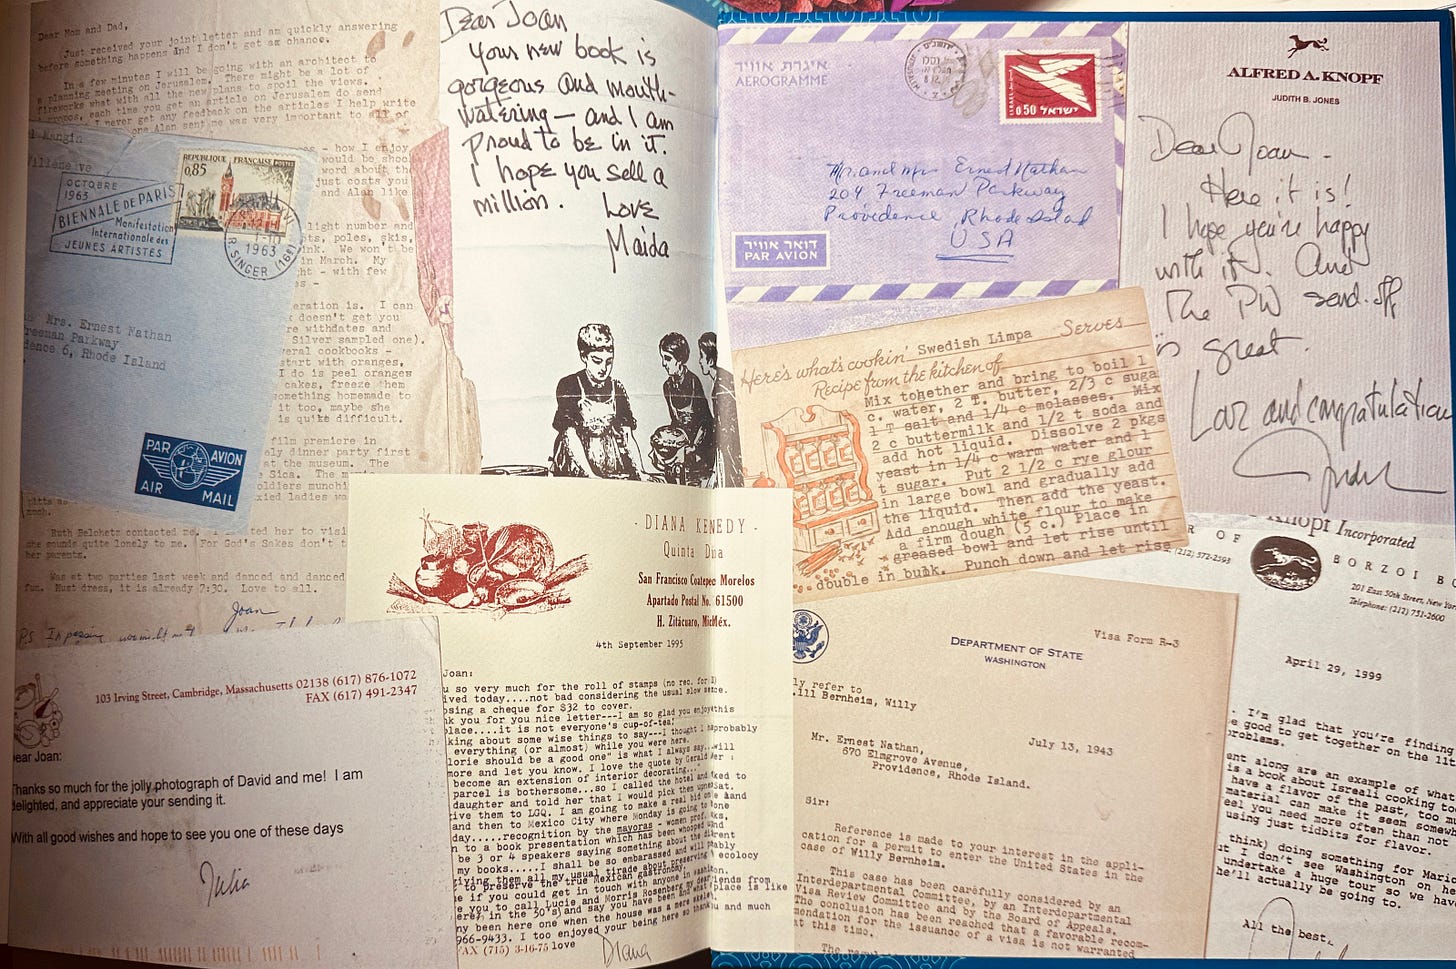 Dear Mom and Dad,
Just received your joint letter and am quickly answering
before something happens and I don't get a chance.
In a few minutes I will be going with an architect to
a planning meeting on Jerusalem. There might be a lot of
fireworks what with all the new plans to spoil the views.
each time you get an article on Jerusalem do send
I never get any feedback on the articles I help write
one Alan sent me was very important to all of
- how I enjoy
would be
word about the
just costs you
and Alan like
light number and
poles, skis,
We won't be
in March. My
- with few
eration is. I can
doesn't get you
withdates and
Silver sampled one).
several cookbooks -
start with oranges,
I do is peel oranges
cakes, freeze them
something homemade to
it too, maybe she
is quite difficult.
film premiere in
dinner party first
at the museum. The
Sica. The
soldiers
ladies
much.
Ruth contacted me. I her to
she sounds quite lonely to me. For God's Sakes don't
her parents.
Was at two parties last week and danced and danced
fun. Must dress, it is already 7:30. Love to all.
Joan
P.S. In passing
REPUBLIQUE FRANÇAISE POSTES
0,85
OCTOBRE
1963
BIENNALE DE PARIS
Manifestation
Internationale des
JEUNES ARTISTES
1963
R. SINGER (16e)
Mrs. Ernest Nathan
Freeman Parkway
dence 6, Rhode Island
PAR AVION
AIR MAIL
Dear Joan
Your new book is
gorgeous and mouth-
watering — and I am
proud to be in it.
I hope you sell a
million.
Love
Maida
103 Irving Street, Cambridge, Massachusetts 02138 (617) 876-1072
FAX (617) 491-2347
ear Joan:
Thanks so much for the jolly photograph of David and me! I am
delighted, and appreciate your sending it.
With all good wishes and hope to see you one of these days
Julia
- DIANA KENEDY -
Quinta Dua
San Francisco Coatepec Morelos
Apartado Postal No. 61500
H. Zitácuaro, Mich Méx.
4th September 1995
Joan:
u so very much for the roll of stamps (no rec. for
ived today....not bad considering the usual slow
osing a cheque for $32 to cover.
nk you for you nice letter---I am so glad you enjoy this
place....it is not everyone's cup-of-tea!
king about some wise things to say---I thought I probably
everything (or almost) while you were here.
lorie should be a good one" is what I always say...will
more and let you know. I love the quote by Gerald
become an extension of interior decorating..."
parcel is bothersome...so I called the hotel and
daughter and told her that I would pick them up
give them to LGQ. I am going to make a real bid
and then to Mexico City where Monday is going to
day.....recognition by the mayoras - women
n to a book presentation which has been whopped
be 3 or 4 speakers saying something about
my books.....I shall be so embarassed and will
giving them all my usual tirade about preserving ecolocy
to preserve the true Mexican gastronomy.
e if you could get in touch with anyone in
e you to call Lucie and Morris Rosenberg
in the 50's) and say you have been
ny been here one when the house was a mere
966-9433. I too enjoyed your being here so
FAX (715) 3-16-75 love
Diana
איגרת אוויר
AEROGRAMME
ISRAEL ישראל 0.50
Mr. and Mrs Ernest Nathan
204 Freeman Parkway
Providence, Rhode Island
USA
דואר אוויר
PAR AVION
ALFRED A. KNOPF
JUDITH B. JONES
Dear Joan -
Here it is!
I hope you're happy
with it. And
the PW send-off
is great.
Love and congratulations
Judith
Here's what's cookin' Swedish Limpa Serves
Recipe from the kitchen of
Mix together and bring to boil 1
c. water, 2 T. butter, 2/3 c suga
1 T salt and 1/4 c molasses. Mix
2 c buttermilk and 1/2 t soda and
add hot liquid. Dissolve 2 pkgs
yeast in 1/4 c warm water and 1
t sugar. Put 2 1/2 c rye glour
in large bowl and gradually add
the liquid. Then add the yeast.
Add enough white flour to make
a firm dough (5 c.) Place in
greased bowl and let rise until
double in bulk. Punch down and let rise
Knopf Incorporated
OF BORZOI BO
(212) 572-2593
201 East 50th Street, New York
Telephone: (212) 751-2600
April 29, 1999
I'm glad that you're finding
e good to get together on the lit
roblems.
ent along are an example of what
is a book about Isreali cooking to
have a flavor of the past, too mu
material can make it seem somewh
eel you need more often than not
using just tidbits for flavor.
think) doing something for Mario
it I don't see Washington on he
undertake a huge tour so we hav
he'll actually be going to.
All the best,
DEPARTMENT OF STATE
WASHINGTON
Visa Form R-3
ly refer to
ill Bernheim, Willy
July 13, 1943
Mr. Ernest Nathan,
670 Elmgrove Avenue,
Providence, Rhode Island.
Sir:
Reference is made to your interest in the appli-
cation for a permit to enter the United States in the
case of Willy Bernheim.
This case has been carefully considered by an
Interdepartmental Committee, by an Interdepartmental
Visa Review Committee and by the Board of Appeals.
The conclusion has been reached that a favorable recom-
mendation for the issuance of a visa is not warranted
at this time.
The